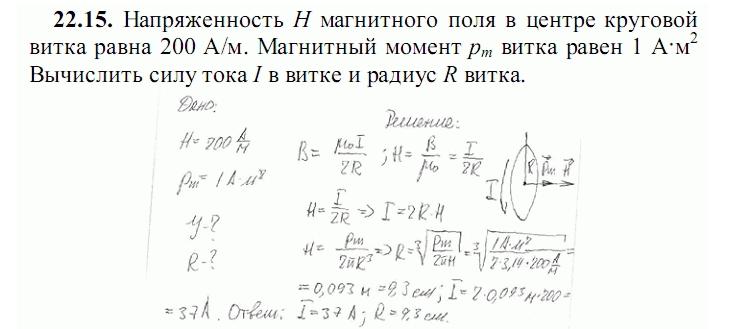 22.15. Напряженность H магнитного поля в центре круговой
витка равна 200 А/м. Магнитный момент pm витка равен 1 А·м²
Вычислить силу тока I в витке и радиус R витка.
Дано:
Решение:
H= 200 А/м
B= μ₀I/2R ; H= B/μ₀ = I/2R
I R p⃗m H⃗
pm= 1 А·м²
H= I/2R => I=2R·H
У-?
H= pm/2πR³ => R=∛(pm/2πH) = ∛(1А·м²/2·3,14·200 А/м) =
R-?
=0,093 м =9,3 см; I=2·0,093м·200=
=37А. Ответ: I=37А; R=9,3 см.